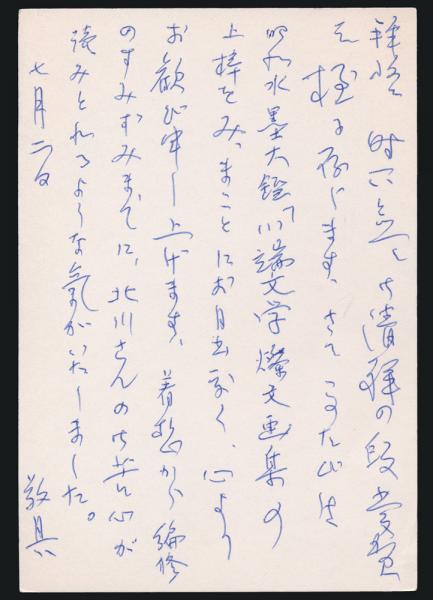 拝啓 時下益々御清祥の段
存じます、さてこのたびは
昭和水墨大鑑「川端文学燦文画集」の
上梓をみ、まことにお目出度く、心より
お歓び申し上げます、着想から編修
のすみずみまでに、北川さんの御苦心が
読みとれるような気がいたしました。
七月二日 敬具